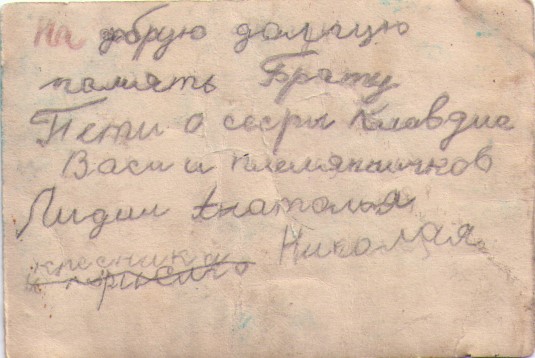 На добрую долгую
память Брату
Пети о сесры Клавдие
Васи и племянничков
Лидии Анатолья
Николая
кресника